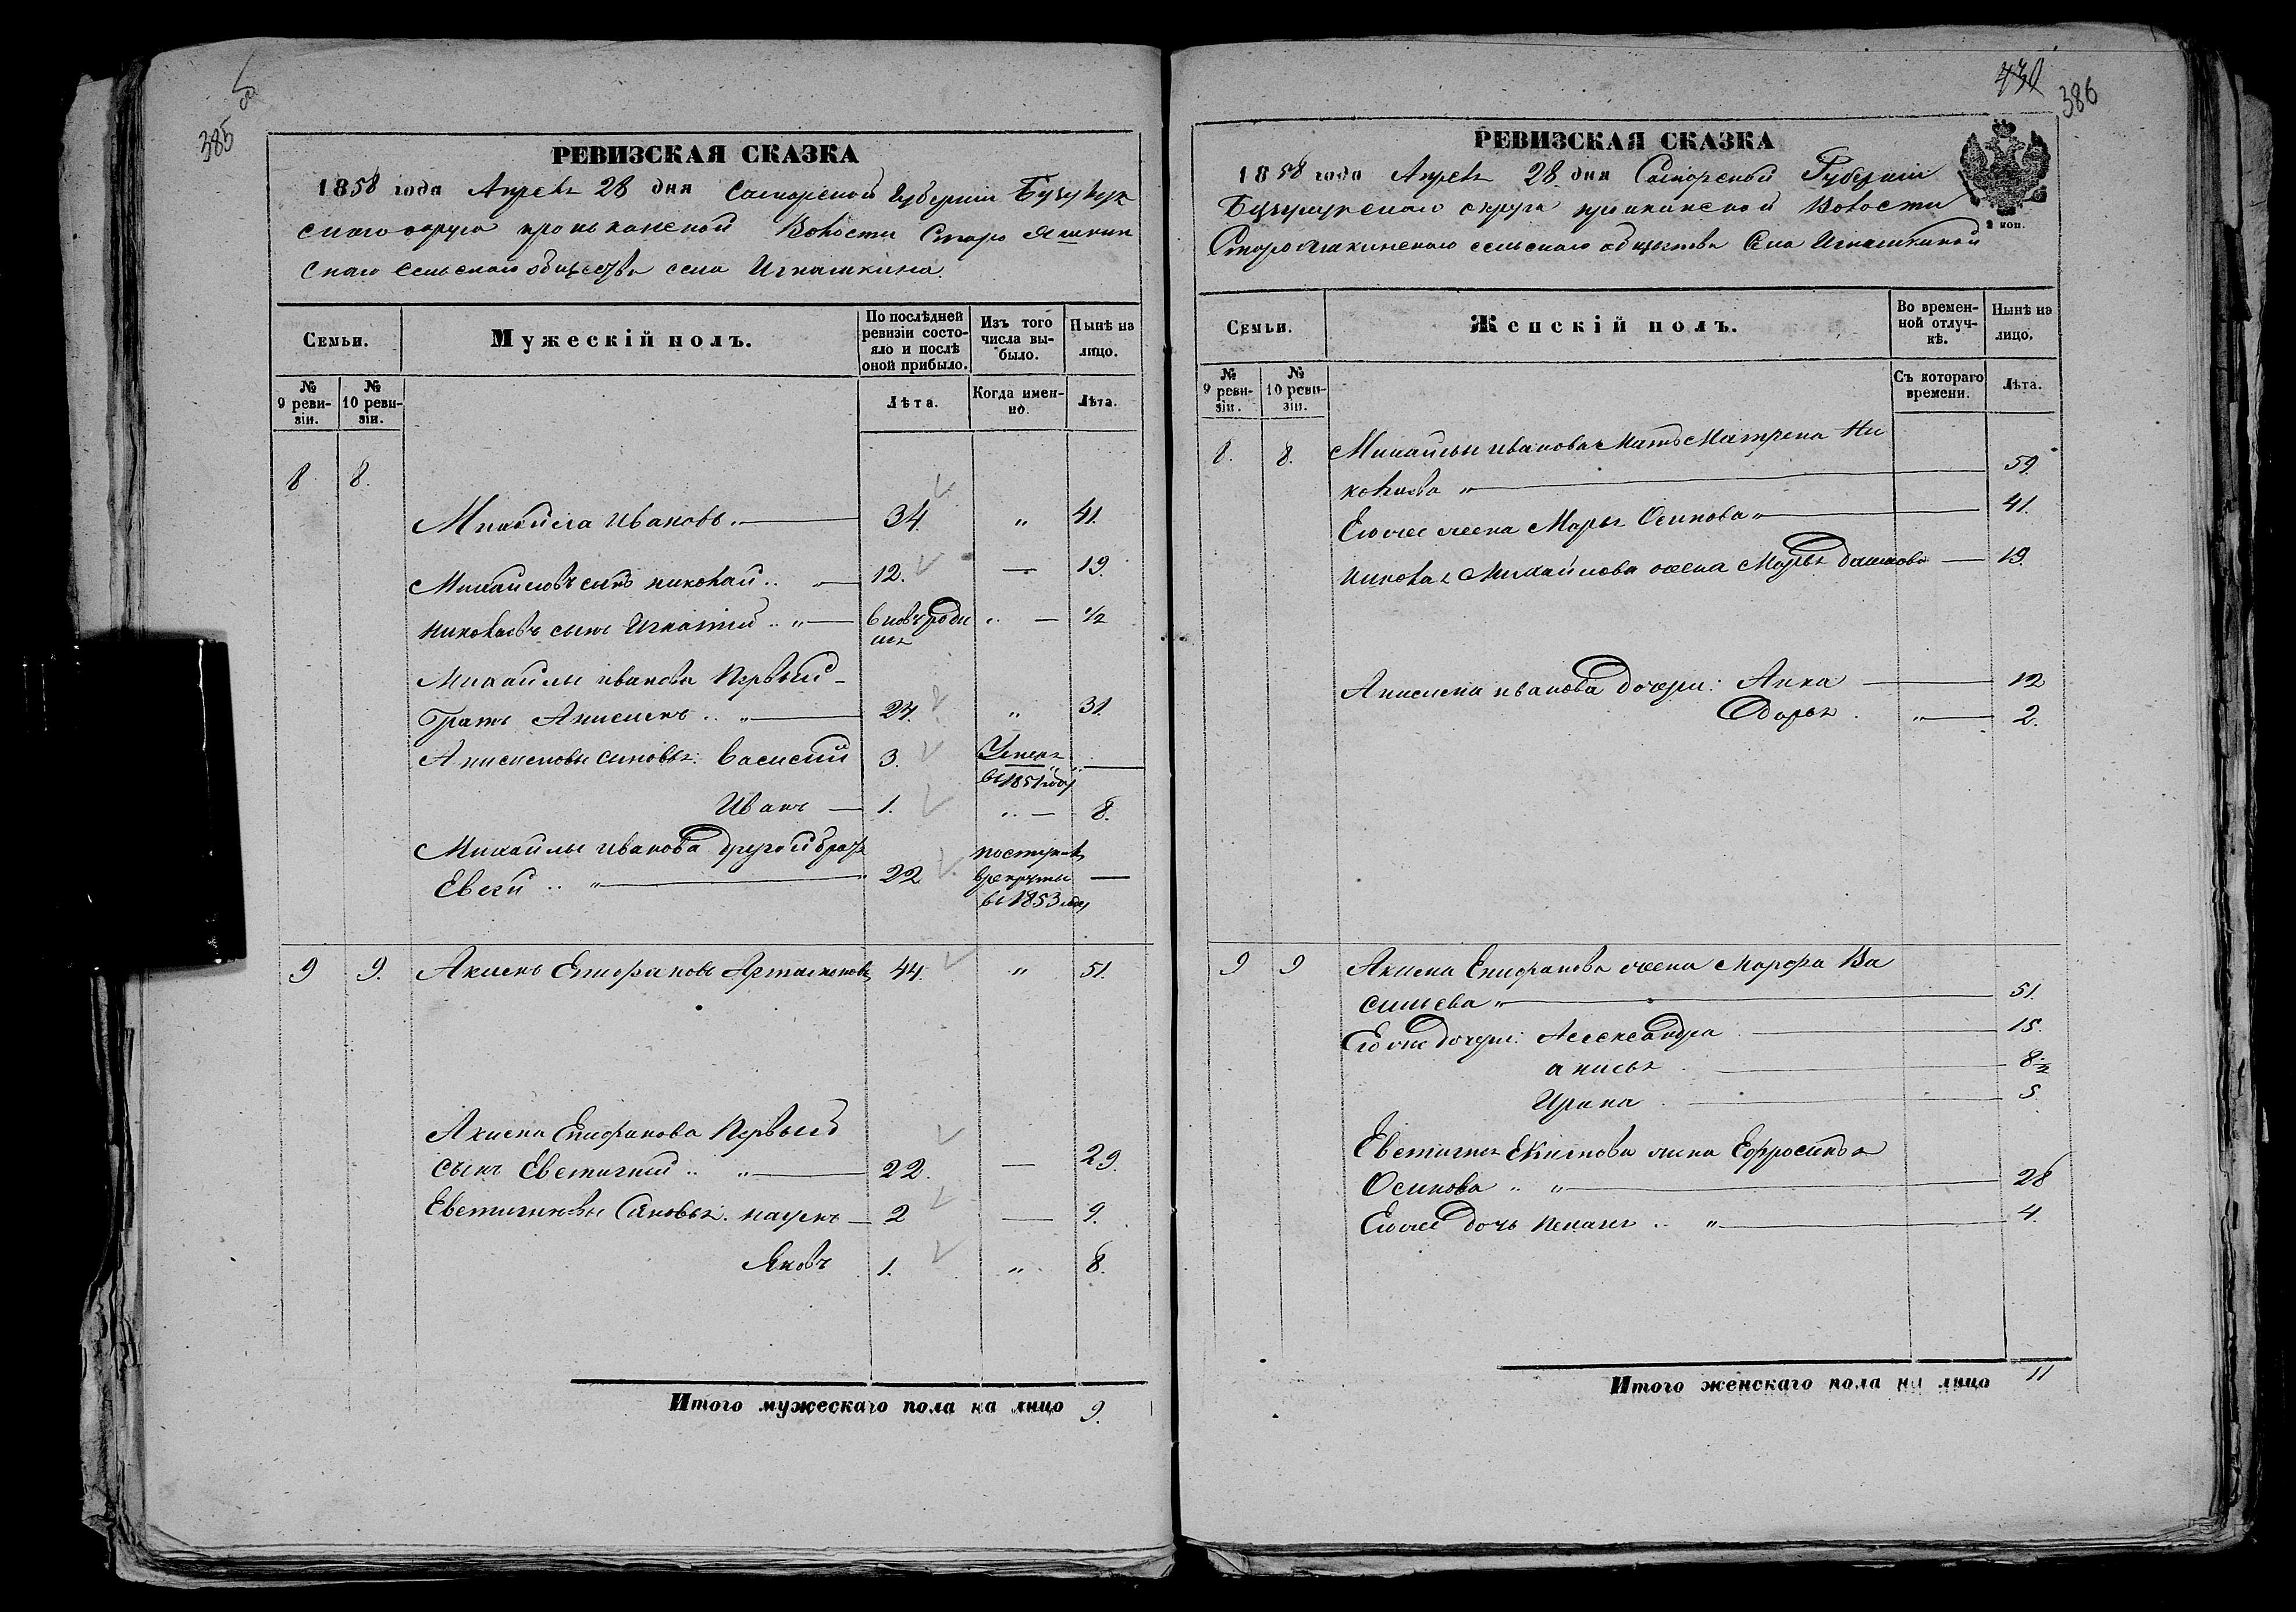 385
РЕВИЗСКАЯ СКАЗКА
1858 года Апреля 28 дня Самарской Губернии Бузулук
скаго округа пронькинской Волости Старо Яшкин
скаго Сельскаго общества села Игнашкина.
Семьи.
Мужескій полъ.
По послѣдней ревизіи состояло и послѣ оной прибыло.
Изъ того числа выбыло.
Нынѣ на лицо.
№ 9 ревизіи.
№ 10 ревизіи.
Лѣта.
Когда именно.
Лѣта.
8 8.
Михайла Ивановъ. 34. " 41.
Михайловъ сынъ николай 12. — 19.
николаевъ сынъ Игнатий " вновь роди
лся " — 1/2
Михайлы иванова Первый
братъ Анисимъ " 24. " 31.
Анисимовы сыновья: Василий 3. Умеръ
въ 1851 году —
Иванъ — 1. " — 8.
Михайлы иванова другой братъ
Евсей " 22 поступилъ
в рекруты
въ 1853 году —
9 9. Акимъ Епифановъ 44. " 51.
Акима Епифанова Первый
сынъ Евстигней " 22. — 29.
Евстигнеевы Сыновья. наумъ — 2 — 9.
Яковъ 1. " 8.
Итого мужескаго пола на лицо 9.
430
386
РЕВИЗСКАЯ СКАЗКА
1858 года Апреля 28 дня Самарской Губернии
Бузулукскаго округа пронькинской Волости
Старояшкинскаго сельскаго общества Села Игнашкиной
2 коп.
Семьи.
Женскій полъ.
Во временной отлучкѣ.
Нынѣ на лицо.
№ 9 ревизіи.
№ 10 ревизіи.
Съ котораго времени.
Лѣта.
8. 8. Михайлы иванова Мать Матрена Ни
колаева " 59.
Его же жена Марья Осипова " 41.
николая Михайлова жена Марья — 19.
Анисима иванова дочери: Анна 12
Дарья. " 2.
9 9 Акима Епифанова жена Марфа Ва
сильева " 51.
Его же дочери: Александра 15.
анисья 8 1/2
Ирина 5
Евстигнея Екимова жена Ефросинья
Осипова " 28
Его же дочь " 4.
Итого женскаго пола на лицо 11